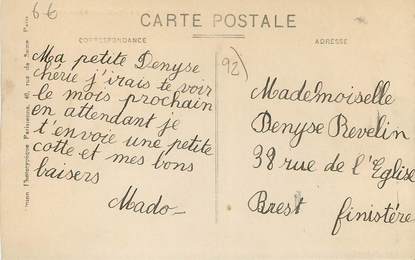 6 6
CARTE POSTALE
CORRESPONDANCE
ADRESSE
92
Ma petite Denyse
chérie j'irais te voir
le mois prochain
en attendant je
t'envoie une petite
cotte et mes bons
baisers
Mado
Mademoiselle
Denyse Revelin
38 rue de l'Eglise
Brest finistére
Parisienne, 40, rue de Seine Paris